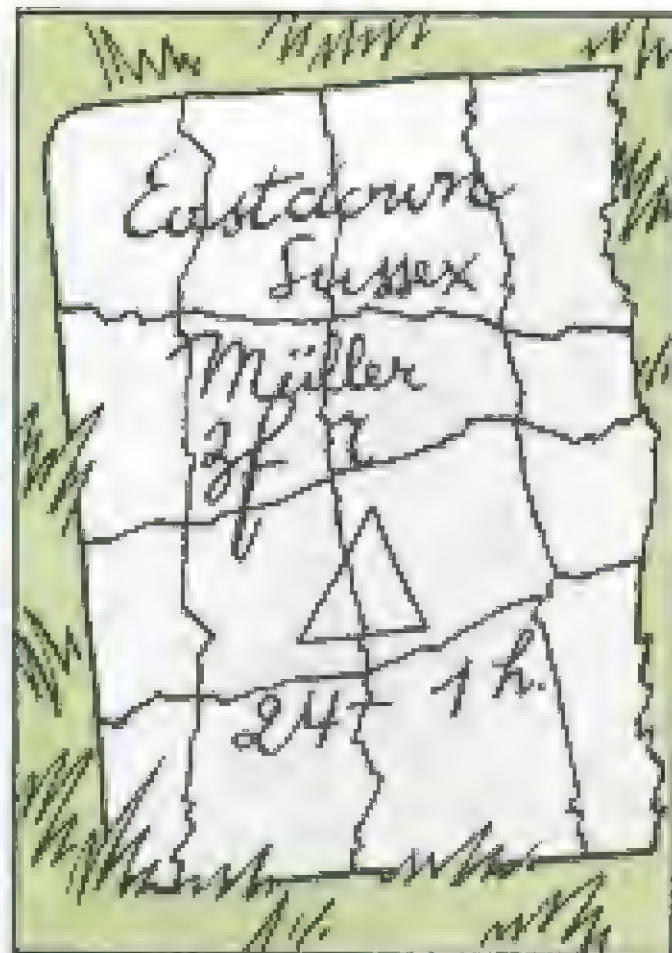 Eastdown
Sussex
Müller
3f. r.
24 - 1 h.